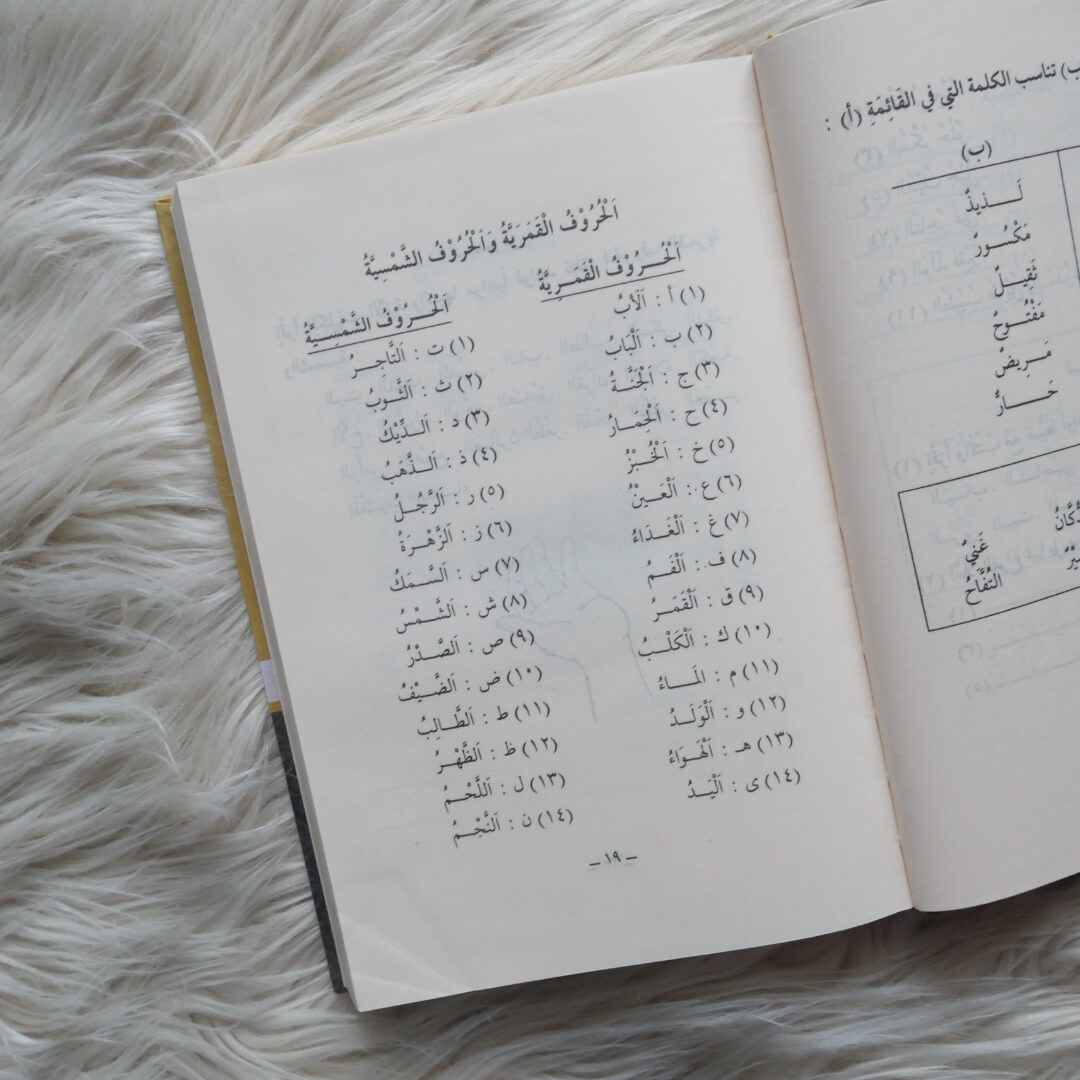 اَلْحُرُوْفُ الْقَمَرِيَّةُ وَاَلْحُرُوْفُ الشَّمْسِيَّةُ
اَلْحُـرُوْفُ الْقَمَـرِيَّةُ
(١) أ : اَلَأبُ
(٢) ب : اَلْبَابُ
(٣) ج : اَلْجَنَّةُ
(٤) ح : اَلْحِمَـارُ
(٥) خ : اَلْخُبْزُ
(٦) ع : اَلْعَيْنُ
(٧) غ : اَلْغَدَاءُ
(٨) ف : اَلْفَـمُ
(٩) ق : اَلْقَمَـرُ
(١٠) ك : اَلْكَلْبُ
(١١) م : اَلمَـاءُ
(١٢) و : اَلْوَلَـدُ
(١٣) هـ : اَلْهَوَاءُ
(١٤) ى : اَلْيَـدُ
اَلْحُـرُوْفُ الشَّمْسِـيَّةُ
(١) ت : اَلتَّاجِـرُ
(٢) ث : اَلثَّوْبُ
(٣) د : اَلـدِّيْكُ
(٤) ذ : اَلـذَّهَبُ
(٥) ر : اَلرَّجُـلُ
(٦) ز : اَلزَّهْـرَةُ
(٧) س : اَلسَّمَكُ
(٨) ش : اَلشَّمْسُ
(٩) ص : اَلصَّـدْرُ
(١٠) ض : اَلضَّيْـفُ
(١١) ط : اَلطَّـالِبُ
(١٢) ظ : اَلظَّهْـرُ
(١٣) ل : اَللَّحْـمُ
(١٤) ن : اَلنَّجْـمُ
– ١٩ –
ب) تناسب الكلمة التي في القَائِمَةِ (أ) :
(ب)
لَـــذيذٌ
مَكْسُورٌ
ثَقِيلٌ
مَفْتُوحٌ
مَـرِيضٌ
حَــارٌّ
غَنِيٌّ
التُّفَّاحُ